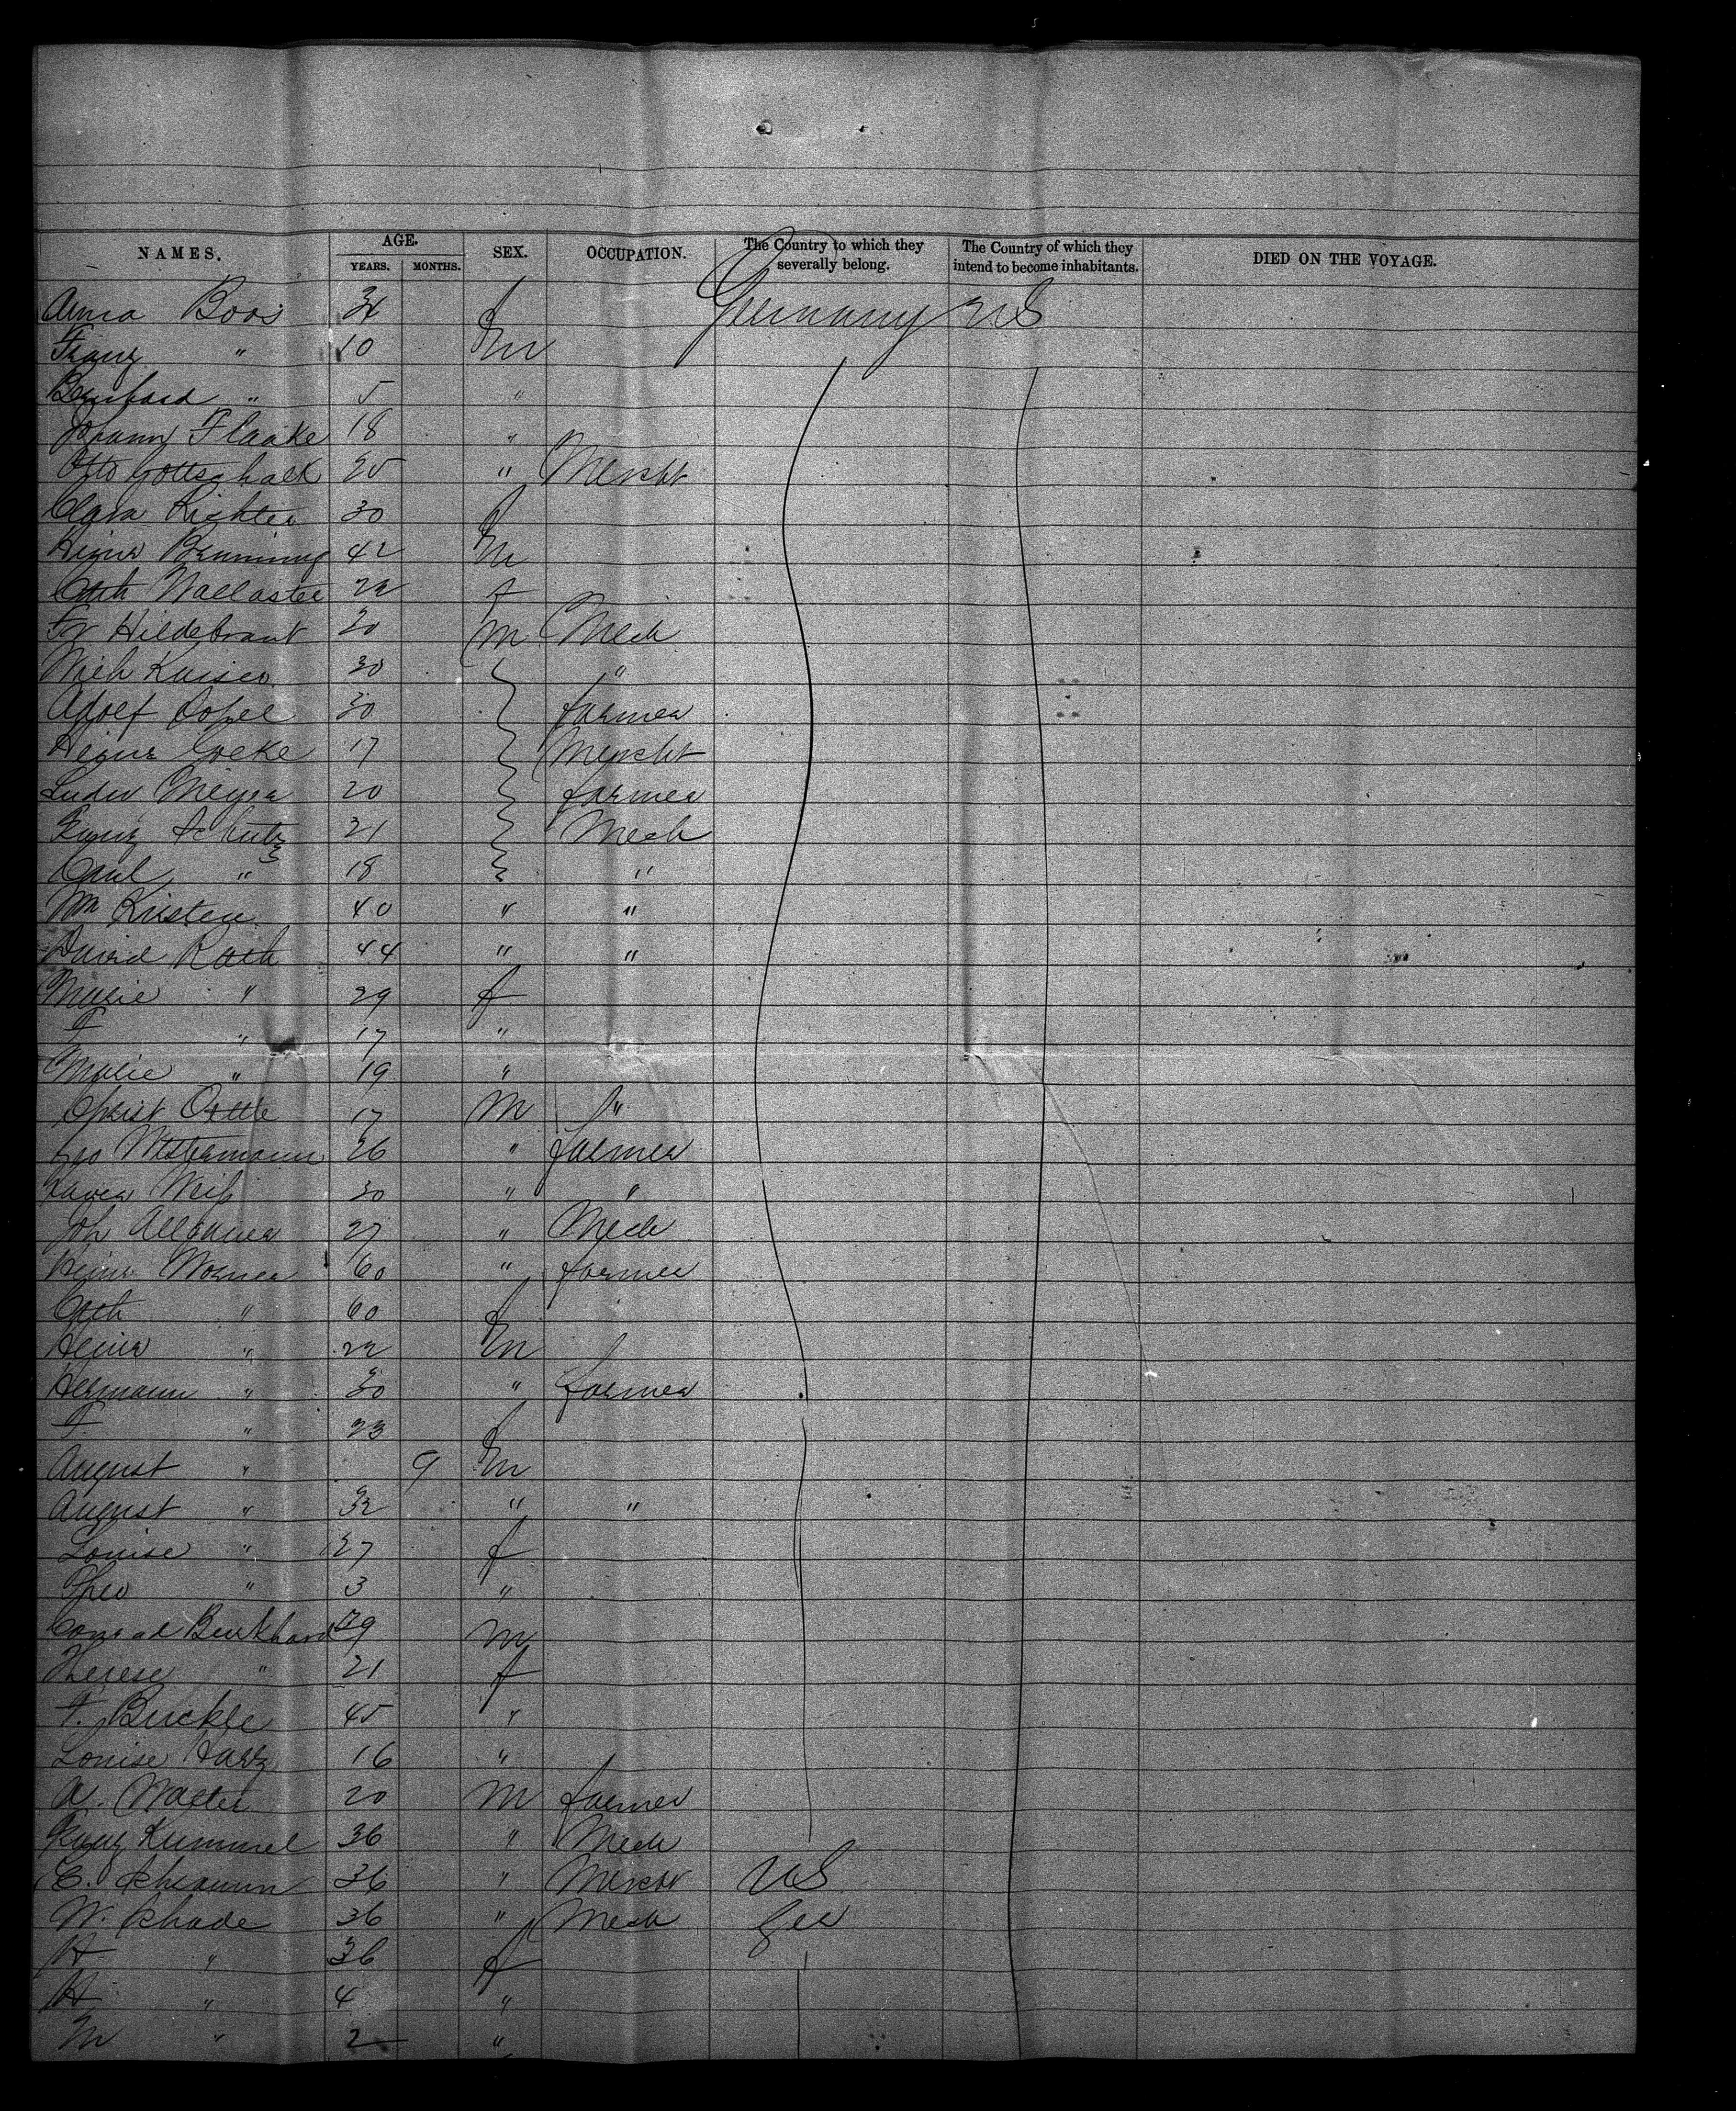 NAMES. AGE. YEARS. MONTHS. SEX. OCCUPATION. The Country to which they severally belong. The Country of which they intend to become inhabitants. DIED ON THE VOYAGE.
Anna Boos 34 f Germany US
Franz " 10 m
Bernhard " 5 "
Johann Flaake 18 "
Otto Gottschalk 25 " Mercht
Clara Richter 30 f
Heinr Brunning 42 m
Cath Wallaster 22 f
Fr Hildebrant 20 m Mech
Mich Kaiser 30 "
Adolf 30 farmer
Heinr Goeke 17 Mercht
Luder Meyer 20 farmer
Franz Schutz 21 Mech
Paul " 18 "
Wm Kristen 40 " "
David Rath 44 " "
Marie " 29 f
F " 17 "
Marie " 19 "
Christ Ortte 17 m "
Geo 26 " farmer
Xaver 30 " "
Joh Allgauer 27 " Mech
Heinr Worner 60 " farmer
Cath " 60 f
Heinr " 22 m
Hermann " 30 " farmer
F " 23 f
August " 9 m
August " 32 " "
Louise " 27 f
Theo " 3 "
Conrad Burkhard 29 m
Therese " 21 f
F. Buckle 45 "
Louise Hartz 16 "
A. Walter 20 m farmer
Franz Kummel 36 " Mech
C. Schramm 36 " Mercht US
W. Schade 36 " Mech Ger
H " 36 f
H " 4 "
M " 2 "